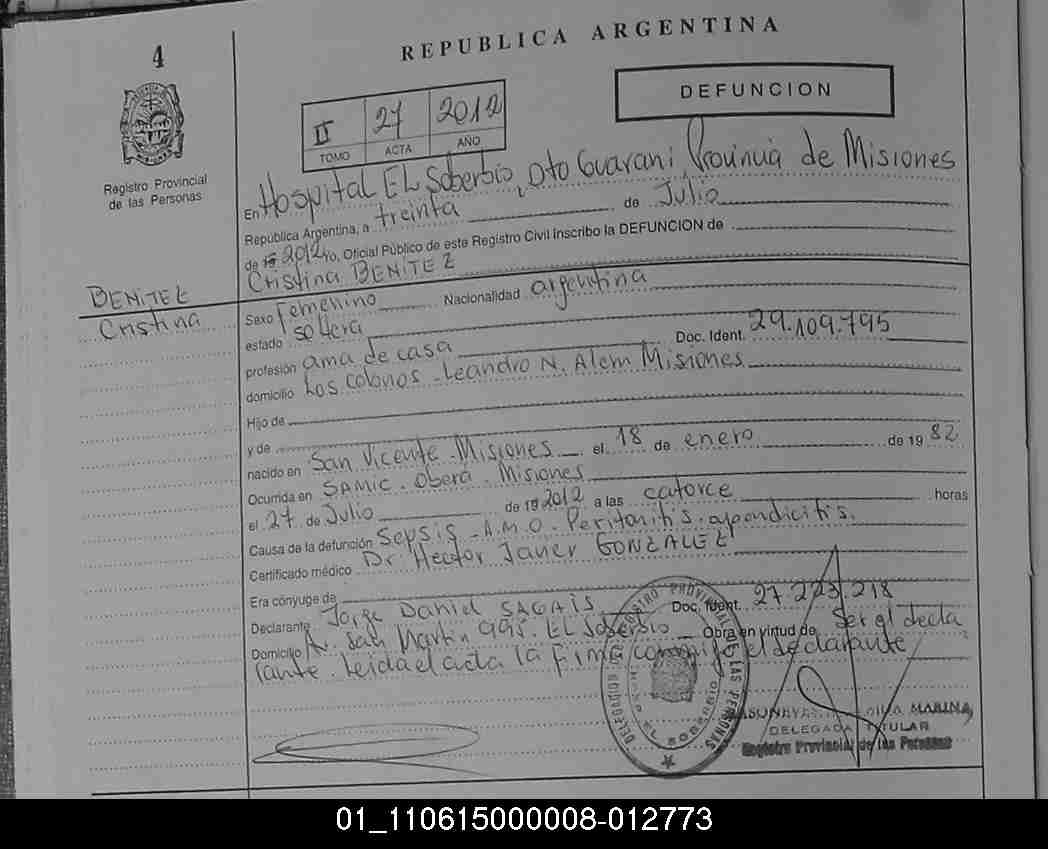 4
REPUBLICA ARGENTINA
DEFUNCION
II 27 2012
TOMO ACTA AÑO
Registro Provincial
de las Personas
En Hospital EL Soberbio, Dto Guaraní, Provincia de Misiones
República Argentina, a treinta de Julio
de 19 2012 yo, Oficial Público de este Registro Civil Inscribo la DEFUNCION de
Cristina BENITEZ
BENITEZ
Cristina
Sexo Femenino Nacionalidad argentina
estado soltera
profesión ama de casa Doc. Ident. 29.109.795
domicilio Los Colonos - Leandro N. Alem Misiones
Hijo de
y de
nacido en San Vicente - Misiones el 18 de enero de 19 82
Ocurrida en SAMIC. Oberá. Misiones
el 27 de Julio de 19 2012 a las catorce horas
Causa de la defunción Sepsis - A.M.O. Peritonitis. apendicitis.
Certificado médico Dr. Hector Javier GONZALEZ
Era cónyuge de
Declarante Jorge Daniel SAGAIS Doc. Ident. 27.223.218
Domicilio Av. San Martín 995. EL Soberbio Obra en virtud de Ser el decla
rante. Leida el acta la Firma conmigo el declarante
REGISTRO PROVINCIAL DE LAS PERSONAS
EL SOBERBIO
MARINA
DELEGADA TITULAR
Registro Provincial de las Personas
01_110615000008-012773